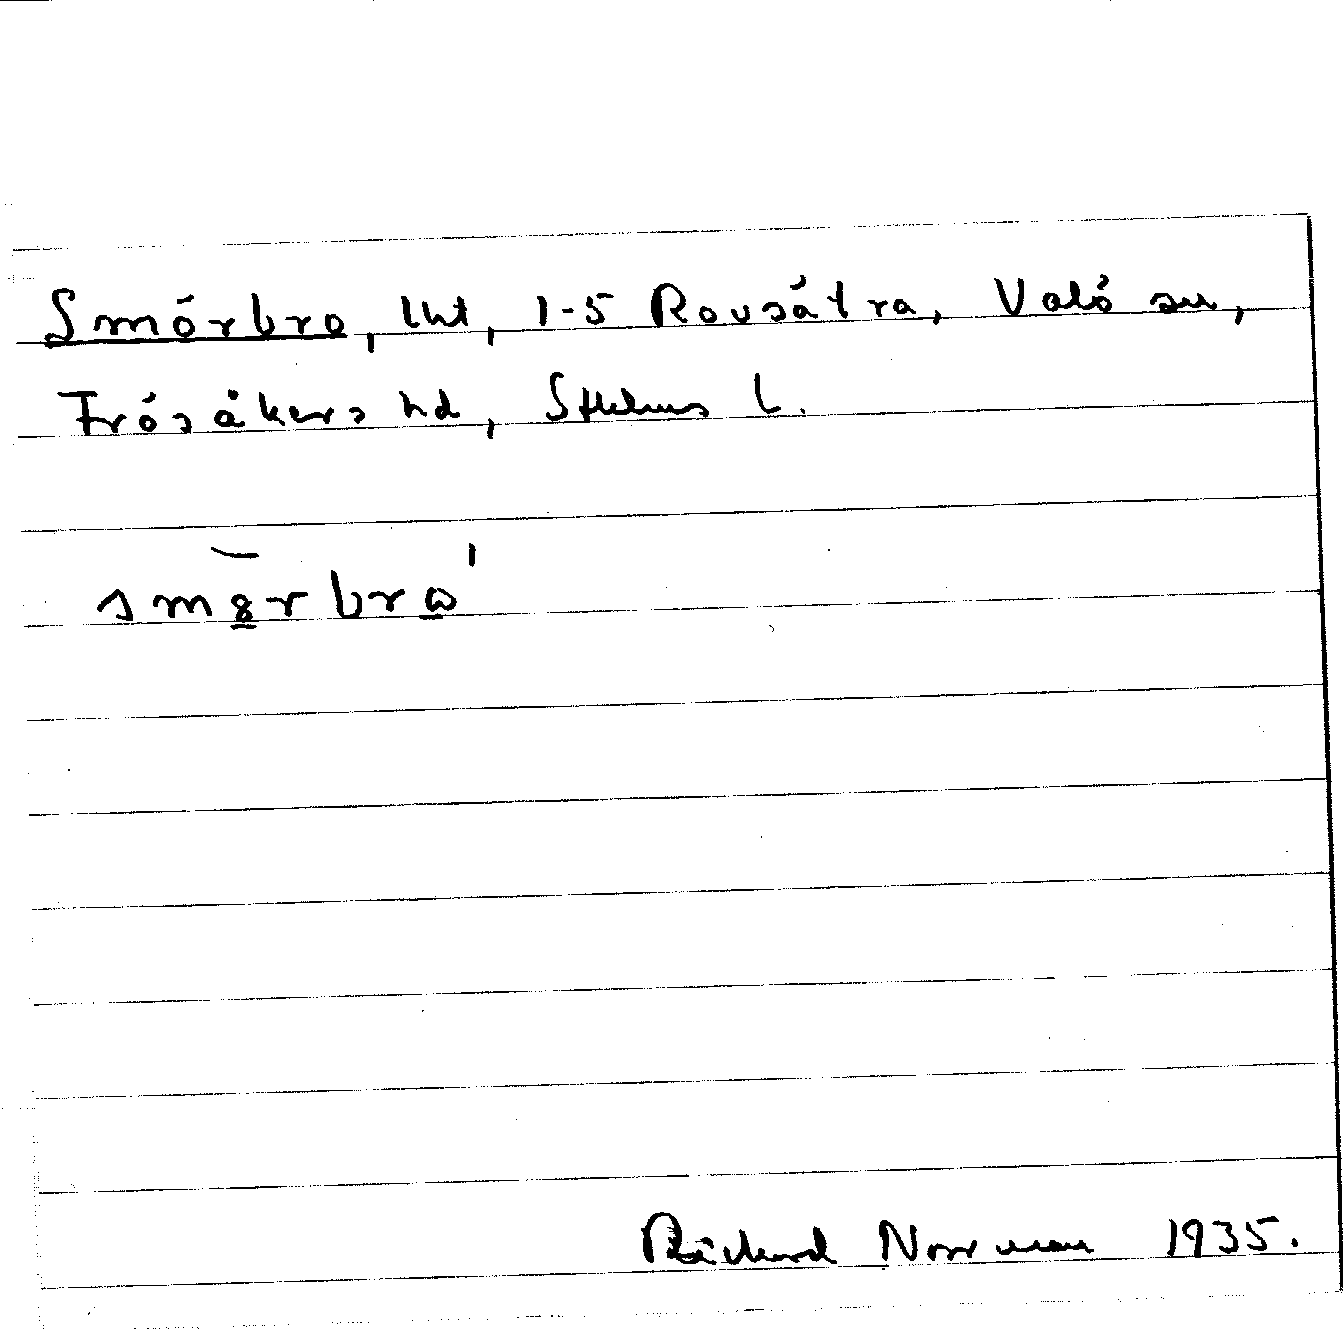 Smörbro, lht, 1-5 Rovsätra, Valö sn,
Frösåkers hd, Sthlms l.
smörbro
Rickard Norrman 1935.